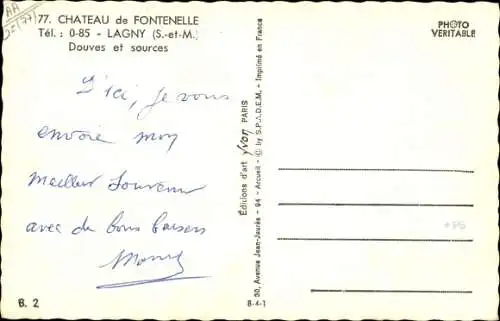 77. CHATEAU de FONTENELLE
Tél. : 0-85 - LAGNY (S.-et-M.)
Douves et sources
D'ici, je vous
envoie mon
meilleur souvenir
avec de bons baisers
B. 2
Éditions d'art Yvon PARIS
30, Avenue Jean-Jaurès - 94 - Arcueil - © by S.P.A.D.E.M. - Imprimé en France
8-4-1
PHOTO
VÉRITABLE